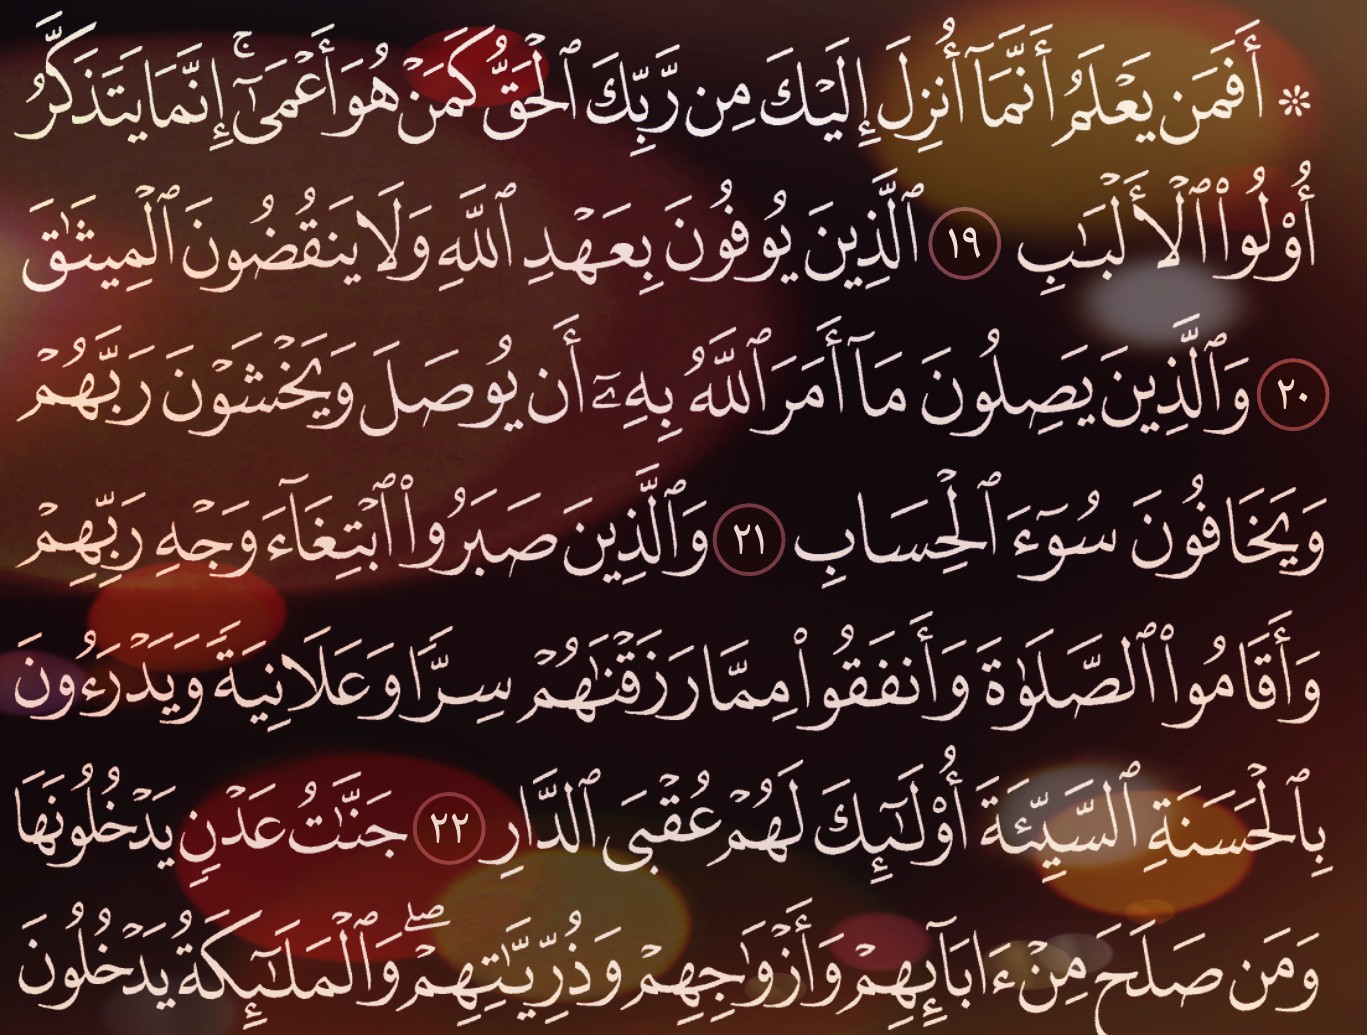 ۞ أَفَمَن يَعْلَمُ أَنَّمَآ أُنزِلَ إِلَيْكَ مِن رَّبِّكَ ٱلْحَقُّ كَمَنْ هُوَ أَعْمَىٰٓ ۚ إِنَّمَا يَتَذَكَّرُ
أُو۟لُوا۟ ٱلْأَلْبَـٰبِ ١٩ ٱلَّذِينَ يُوفُونَ بِعَهْدِ ٱللَّهِ وَلَا يَنقُضُونَ ٱلْمِيثَـٰقَ
٢٠ وَٱلَّذِينَ يَصِلُونَ مَآ أَمَرَ ٱللَّهُ بِهِۦٓ أَن يُوصَلَ وَيَخْشَوْنَ رَبَّهُمْ
وَيَخَافُونَ سُوٓءَ ٱلْحِسَابِ ٢١ وَٱلَّذِينَ صَبَرُوا۟ ٱبْتِغَآءَ وَجْهِ رَبِّهِمْ
وَأَقَامُوا۟ ٱلصَّلَوٰةَ وَأَنفَقُوا۟ مِمَّا رَزَقْنَـٰهُمْ سِرًّا وَعَلَانِيَةً وَيَدْرَءُونَ
بِٱلْحَسَنَةِ ٱلسَّيِّئَةَ أُو۟لَـٰٓئِكَ لَهُمْ عُقْبَى ٱلدَّارِ ٢٢ جَنَّـٰتُ عَدْنٍ يَدْخُلُونَهَا
وَمَن صَلَحَ مِنْ ءَابَآئِهِمْ وَأَزْوَٰجِهِمْ وَذُرِّيَّـٰتِهِمْ ۖ وَٱلْمَلَـٰٓئِكَةُ يَدْخُلُونَ